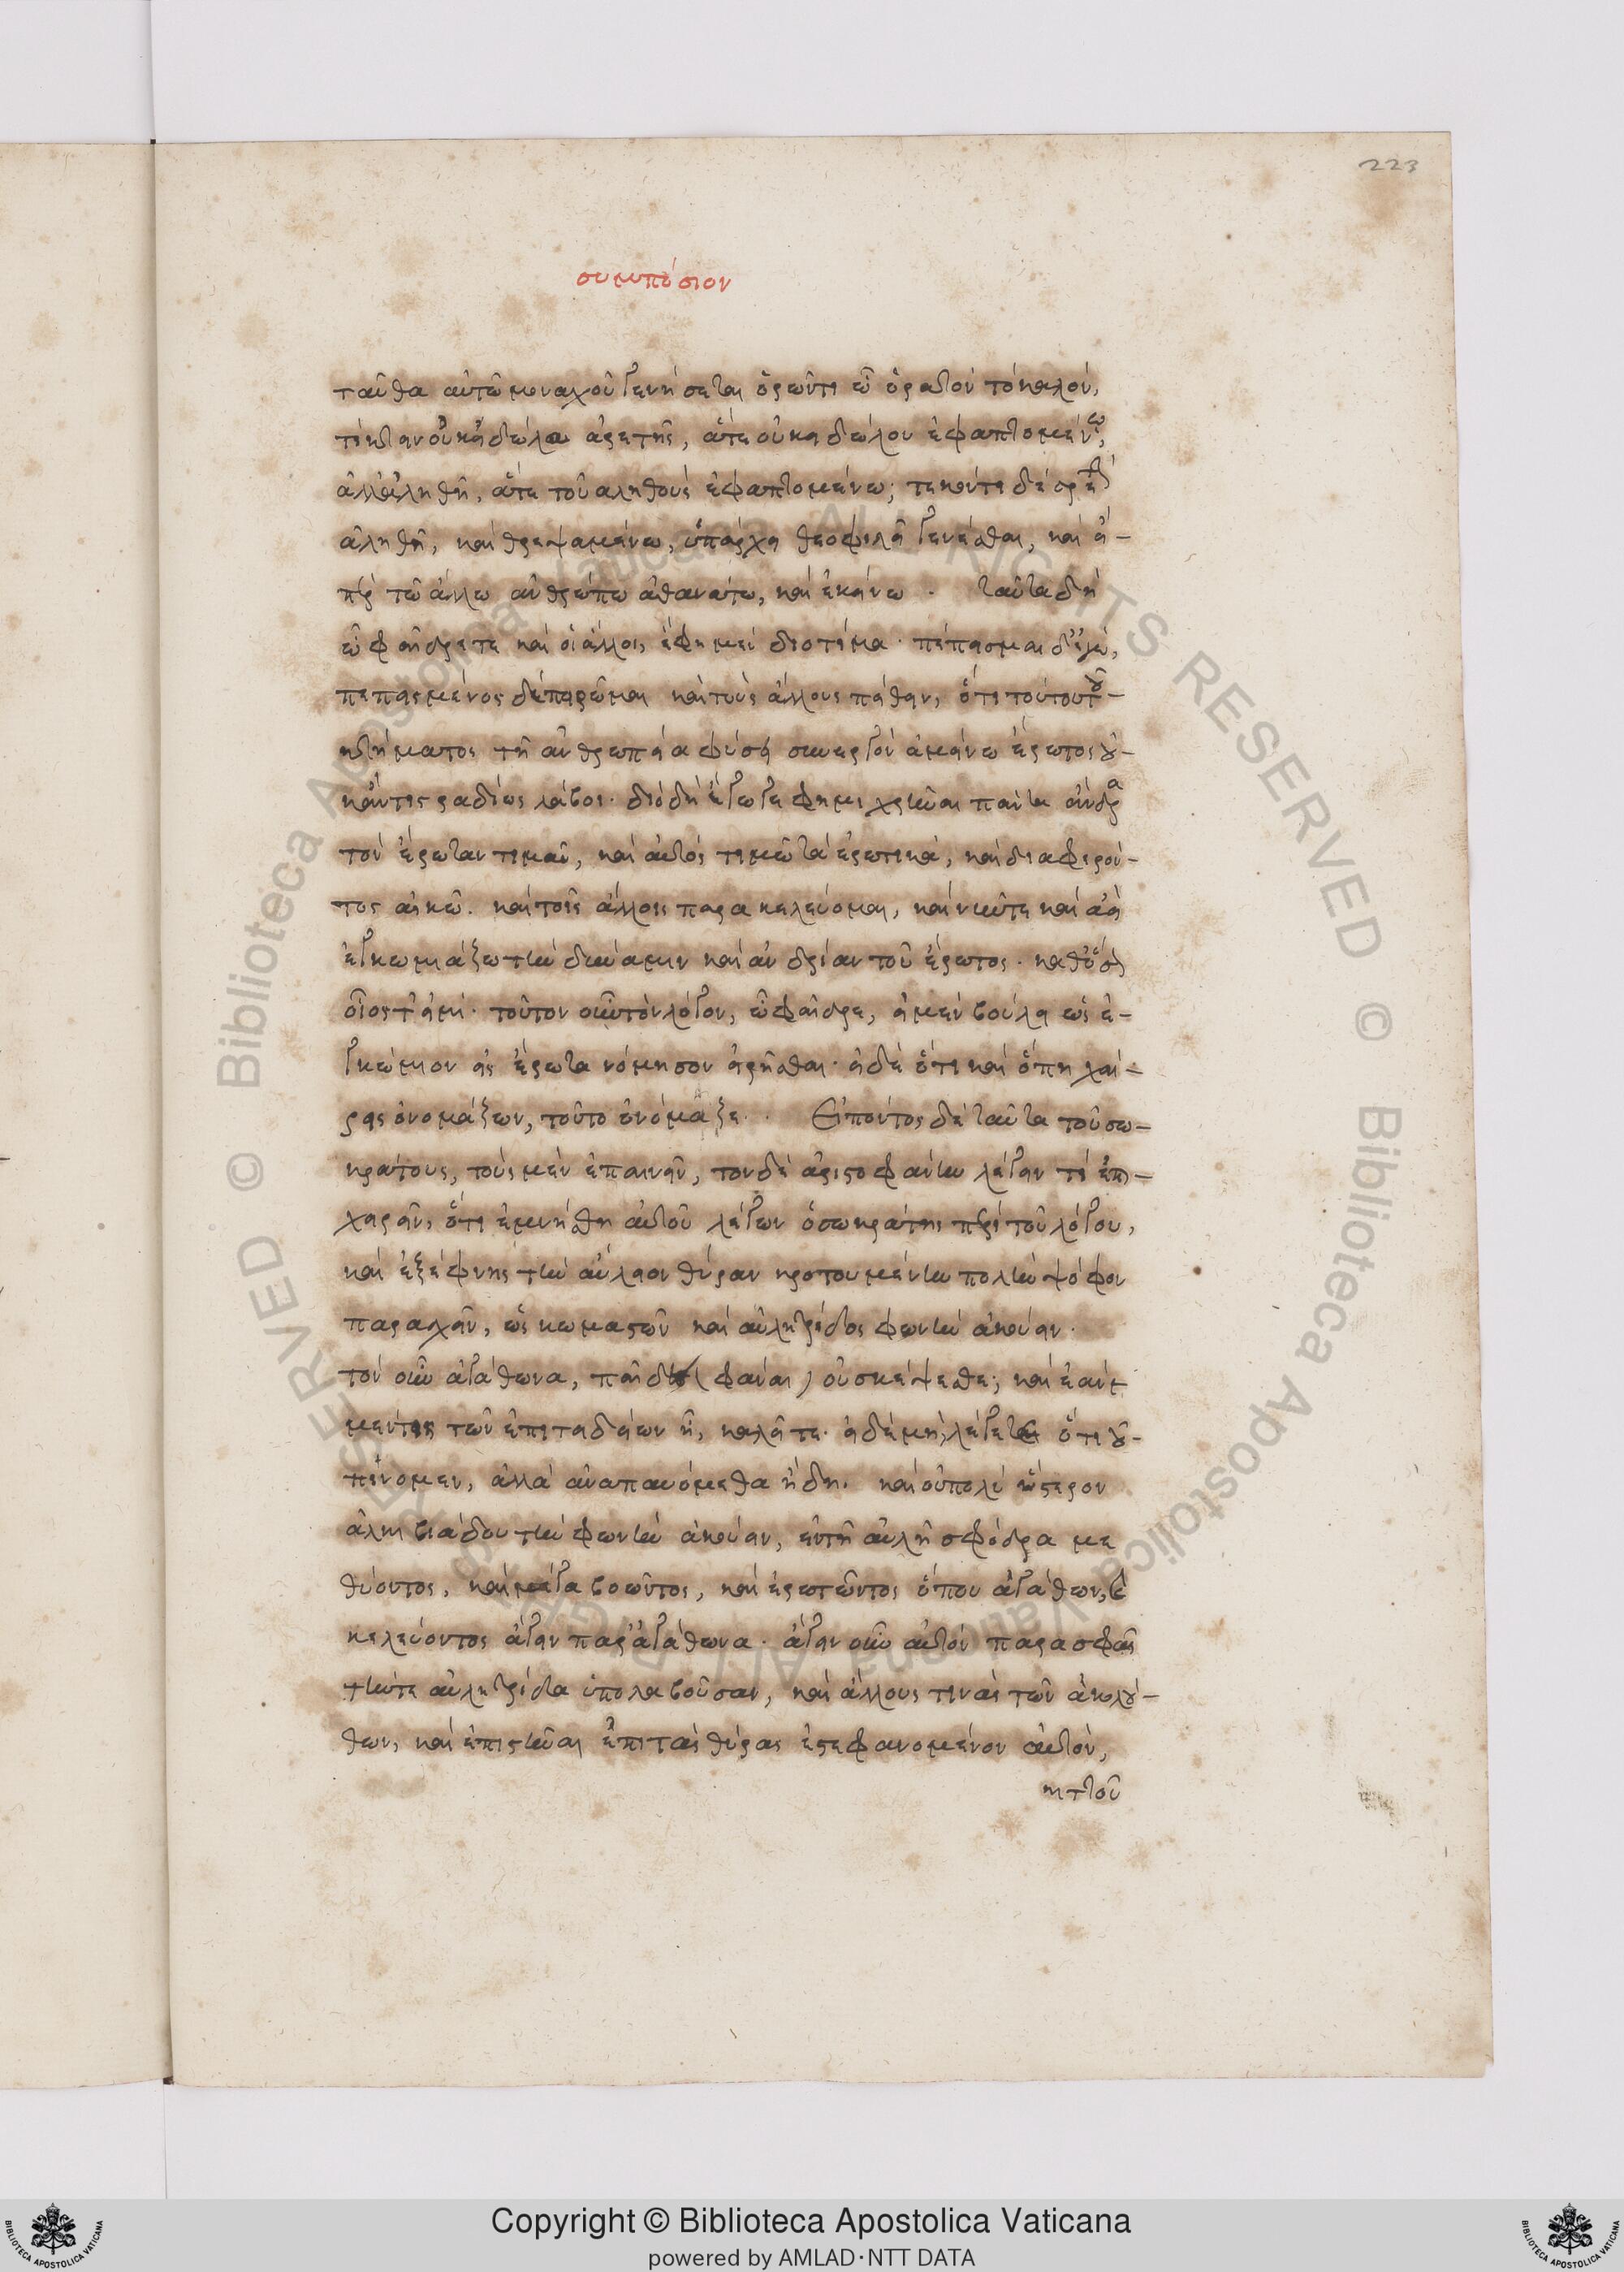 223
συμπόσιον
ταῦθα αὐτῶ μοναχοῦ γενήσεται ὁρῶντι ὧ ὁρατὸν τὸ καλόν,
τίκτειν οὐκ εἴδωλα ἀρετῆς, ἅτε οὐκ εἰδώλου ἐφαπτομένω,
ἀλλ' ἀληθῆ, ἅτε τοῦ αληθοῦς ἐφαπτομένω; τεκόντι δὲ ἀρετὴν
ἀληθῆ, καὶ θρεψαμένω, ὑπάρχει θεοφιλεῖ γενέσθαι, καὶ εἴ-
πὲρ τῶ ἄλλω ἀνθρώπω ἀθανάτω, καὶ ἐκείνω. ταῦτα δὴ
ὦ φαῖδρέ τε καὶ οἱ ἄλλοι, ἔφη μὲν διοτίμα· πέπεισμαι δ' ἐγώ,
πεπεισμένος δὲ πειρῶμαι καὶ τοὺς ἄλλους πείθειν, ὅτι τούτου τοῦ
κτήματος τῆ ἀνθρωπεία φύσει συνεργὸν ἀμείνω ἔρωτος οὐ-
κ ἄν τις ραδίως λάβοι. διὸ δὴ ἔγωγέ φημι χρῆναι πάντα ἄνδρα
τὸν ἔρωταν τιμᾶν, καὶ αὐτὸς τιμῶ τὰ ἐρωτικὰ, καὶ διαφερόν-
τος ἀσκῶ. καὶ τοῖς ἄλλοις παρακελεύομαι, καὶ νῦν τε καὶ ἀεὶ
ἐγκωμιάζω τὴν δύναμιν καὶ ἀνδρίαν τοῦ ἔρωτος. καθ' ὅσον
οἷος τ' εἰμί. τοῦτον οὖν τὸν λόγον, ὦ φαῖδρε, εἰ μὲν βούλει ὡς ἐ-
γκώμιον εἰς ἔρωτα νόμησον εἰρῆσθαι· εἰ δὲ ὅτι καὶ ὅπη χαί-
ρεις ὀνομάζων, τοῦτο ὀνόμαζε. Εἰπόντος δὲ ταῦτα τοῦ σω-
κράτους, τοὺς μὲν ἐπαινεῖν, τὸν δὲ ἀριστοφάνην λέγειν τὶ ἐπι-
χειρεῖν, ὅτι ἐμνήσθη αὐτοῦ λέγων ὁ σωκράτης περὶ τοῦ λόγου,
καὶ ἐξέφνης τὴν αὔλειον θύραν κροτουμένην πολὺν ψόφον
παρασχεῖν, ὡς κωμαστῶν καὶ αὐλητρίδος φωνὴν ἀκούειν.
τὸν οὖν ἀγάθωνα, παῖδες (φάναι) οὐ σκέψεσθε; καὶ ἐὰν
μέν τις τῶν ἐπιτηδείων ἦ, καλεῖτε. εἰ δὲ μὴ, λέγετε ὅτι οὐ-
πίνομεν, ἀλλὰ ἀναπαυόμεθα ἤδη. καὶ οὐ πολὺ ὕστερον
ἀλκιβιάδου τὴν φωνὴν ἀκούειν, ἐν τῆ αὐλῆ σφόδρα με
θύοντος, καὶ μέγα βοῶντος, καὶ ἐρωτῶντος ὅπου ἀγάθων, καὶ
κελεύοντος ἄγειν παρ' ἀγάθωνα. ἄγειν οὖν αὐτὸν παρα σφᾶς
τήν τε αὐλητρίδα ὑπολαβοῦσαν, καὶ ἄλλους τινὰς τῶν ἀκολού-
θων, καὶ ἐπιστῆναι ἐπὶ τὰς θύρας ἐστεφανομένον αὐτὸν,
κιττοῦ
Copyright © Biblioteca Apostolica Vaticana
powered by AMLAD·NTT DATA